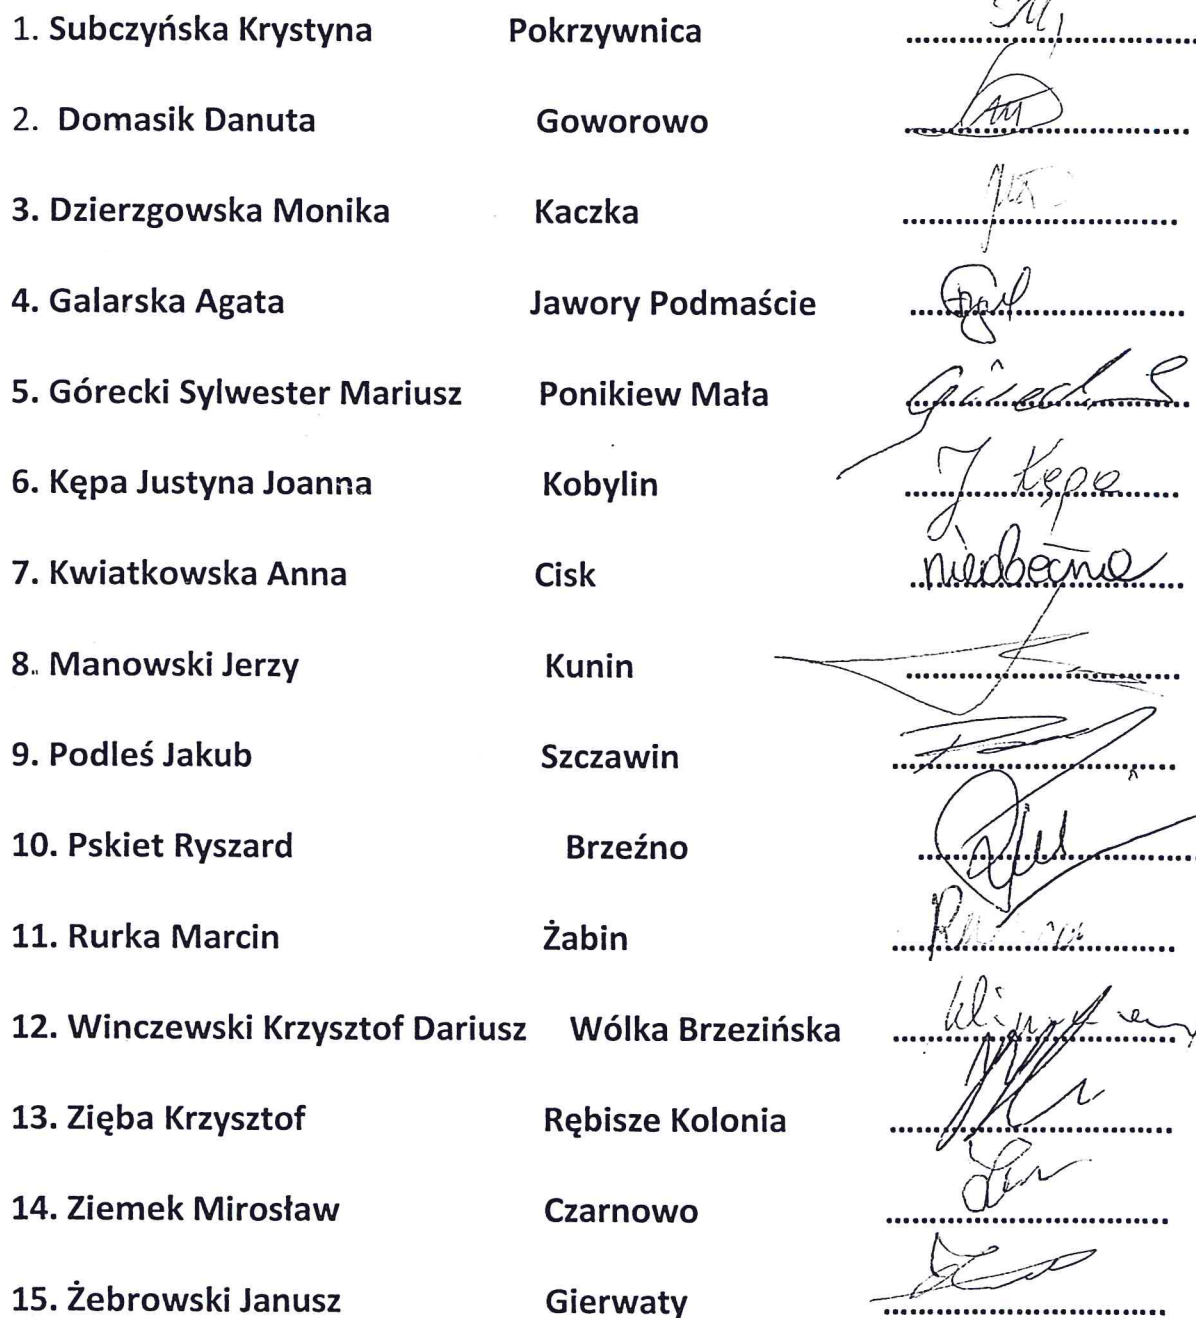 1. Subczyńska Krystyna Pokrzywnica
2. Domasik Danuta Goworowo
3. Dzierzgowska Monika Kaczka
4. Galarska Agata Jawory Podmaście
5. Górecki Sylwester Mariusz Ponikiew Mała
6. Kępa Justyna Joanna Kobylin J Kępa
7. Kwiatkowska Anna Cisk nieobecna
8. Manowski Jerzy Kunin
9. Podleś Jakub Szczawin
10. Pskiet Ryszard Brzeźno
11. Rurka Marcin Żabin
12. Winczewski Krzysztof Dariusz Wólka Brzezińska
13. Zięba Krzysztof Rębisze Kolonia
14. Ziemek Mirosław Czarnowo
15. Żebrowski Janusz Gierwaty